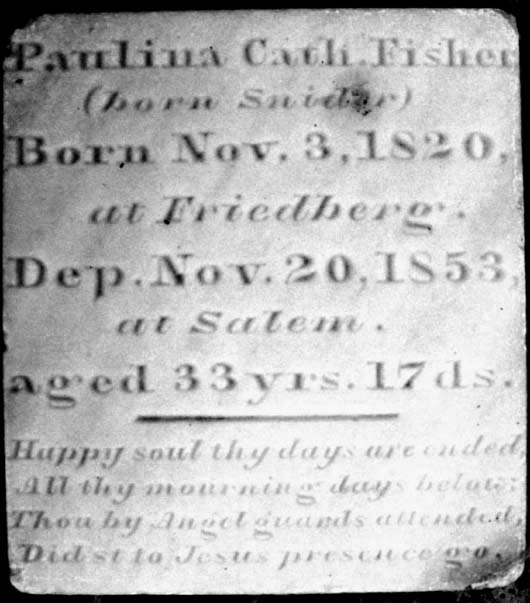 Paulina Cath. Fisher
(born Snider)
Born Nov. 3, 1820,
at Friedberg.
Dep. Nov. 20, 1853,
at Salem.
aged 33 yrs. 17 ds.
Happy soul thy days are ended,
All thy mourning days below:
Thou by Angel guards attended,
Didst to Jesus presence go.